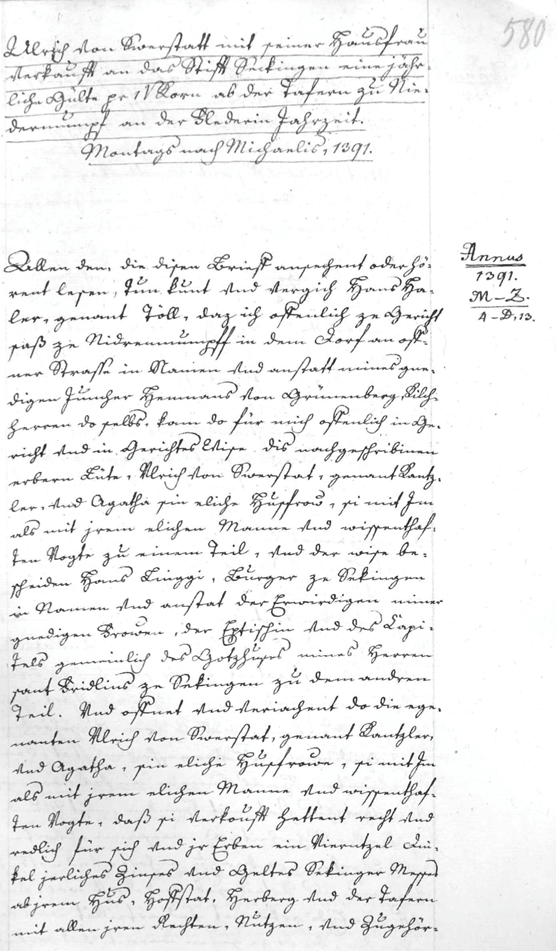 580
Ulrich von Swerstatt mit seiner Hausfrau
verkaufft an das Stifft Seckingen eine jähr-
liche Gülte pr 1 V Korn ab der Tafern zu Nie-
dermumpf an der Kloderin Jahrzeit.
Montags nach Michaelis, 1391.
Annus
1391.
M–Z.
4–D, 13.
Allen den, die disen Brieff ansechent oder hö-
rent lesen, Tun kunt vnd vergich Hans Ha-
ler, genant Töll, daz ich offenlich ze Gericht
saß ze Nidrenmumpff in dem Dorf an off-
ner Strasse in Namen vnd anstatt mins gne-
digen Juncher Hemmans von Grünenberg, Kilch-
herren do selbs, kam do für mich offenlich in Ge-
richt vnd in Gerichtes Wise dis nachgeschribinen
erbern Lüte, Vlrich von Swerstat, genant Kantz-
ler, vnd Agatha sin eliche Husfrow, si mit Im
als mit jrem elichen Manne vnd wissenthaf-
ten Vogte zu einem Teil, vnd der wise be-
scheiden Hans Linggi, Burger ze Sekingen
in Namen vnd anstat der Erwirdigen miner
gnedigen Frowen, der Eptischin vnd des Capi-
tels gemeinlich des Gotzhuses mines Herren
sant Fridlins ze Sekingen zu dem andren
Teil. Vnd offnet vnd veriachent do die ege-
nanten Vlrich von Swerstat, genant Kantzler,
vnd Agatha, sin eliche Husfrowe, si mit Im
als mit jrem elichen Manne vnd wissenthaf-
ten Vogte, daß si verkoufft hettent recht vnd
redlich für sich vnd jr Erben ein Vierntzel Din-
kel jerliches Zinses vnd Geltes Sekinger Messes
ab jrem Hus, Hoffstat, Herberg vnd der Tafern
mit allen jren Rechten, Nutzen, vnd Zugehör-